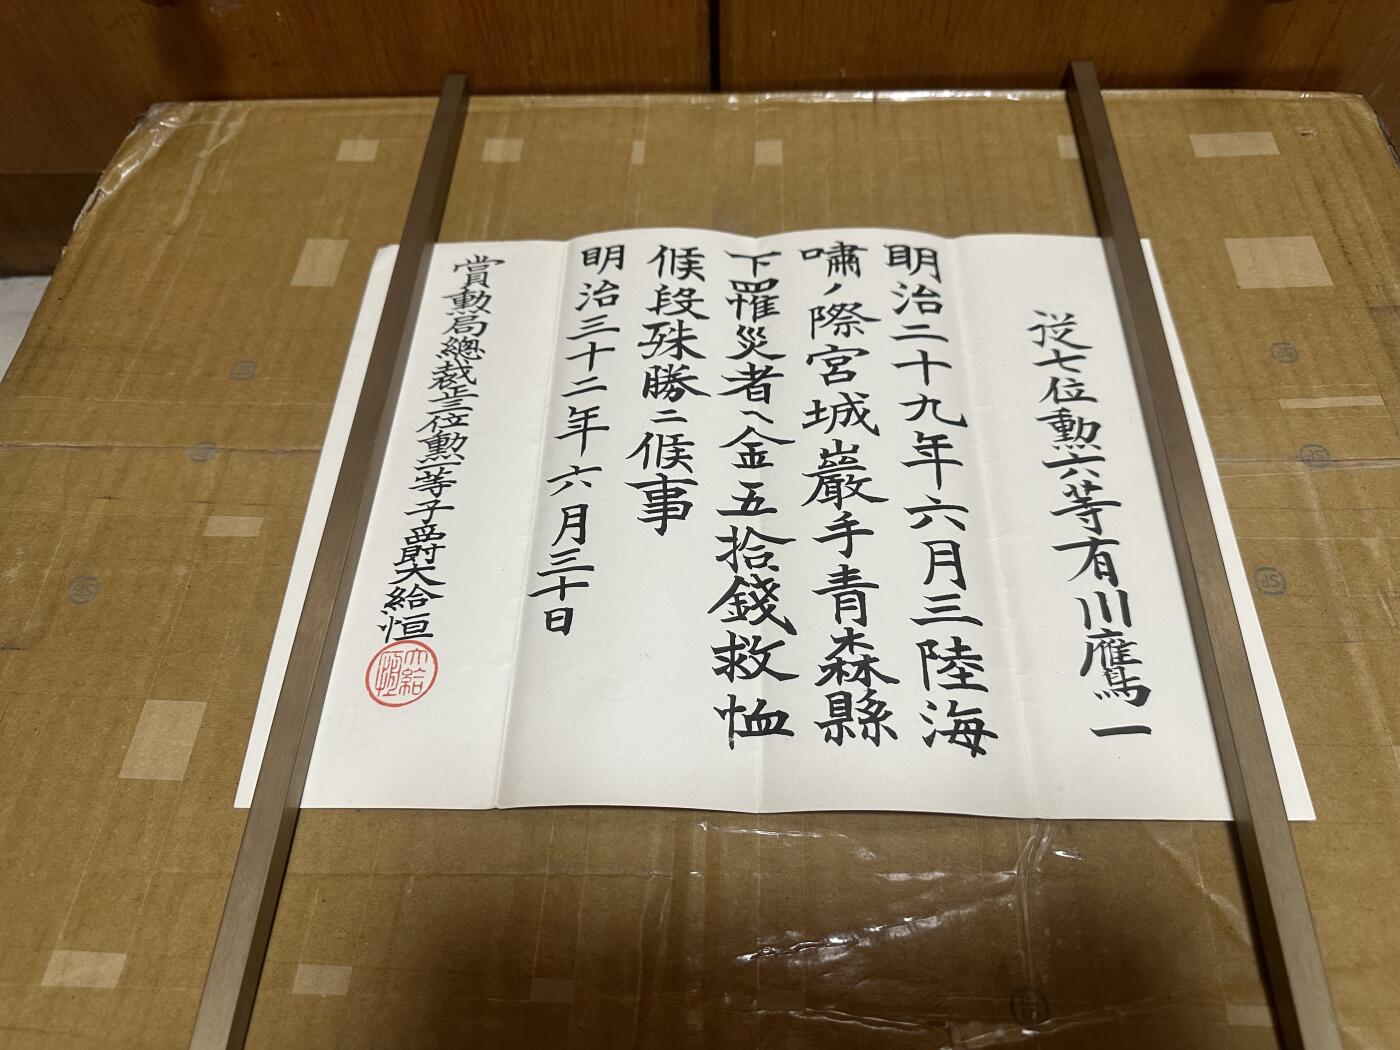 従七位勲六等有川鷹一
明治二十九年六月三陸海
嘯ノ際宮城巖手青森縣
下罹災者ヘ金五拾錢救恤
候段殊勝ニ候事
明治三十二年六月三十日
賞勲局總裁正三位勲一等子爵大給恒
大給恒